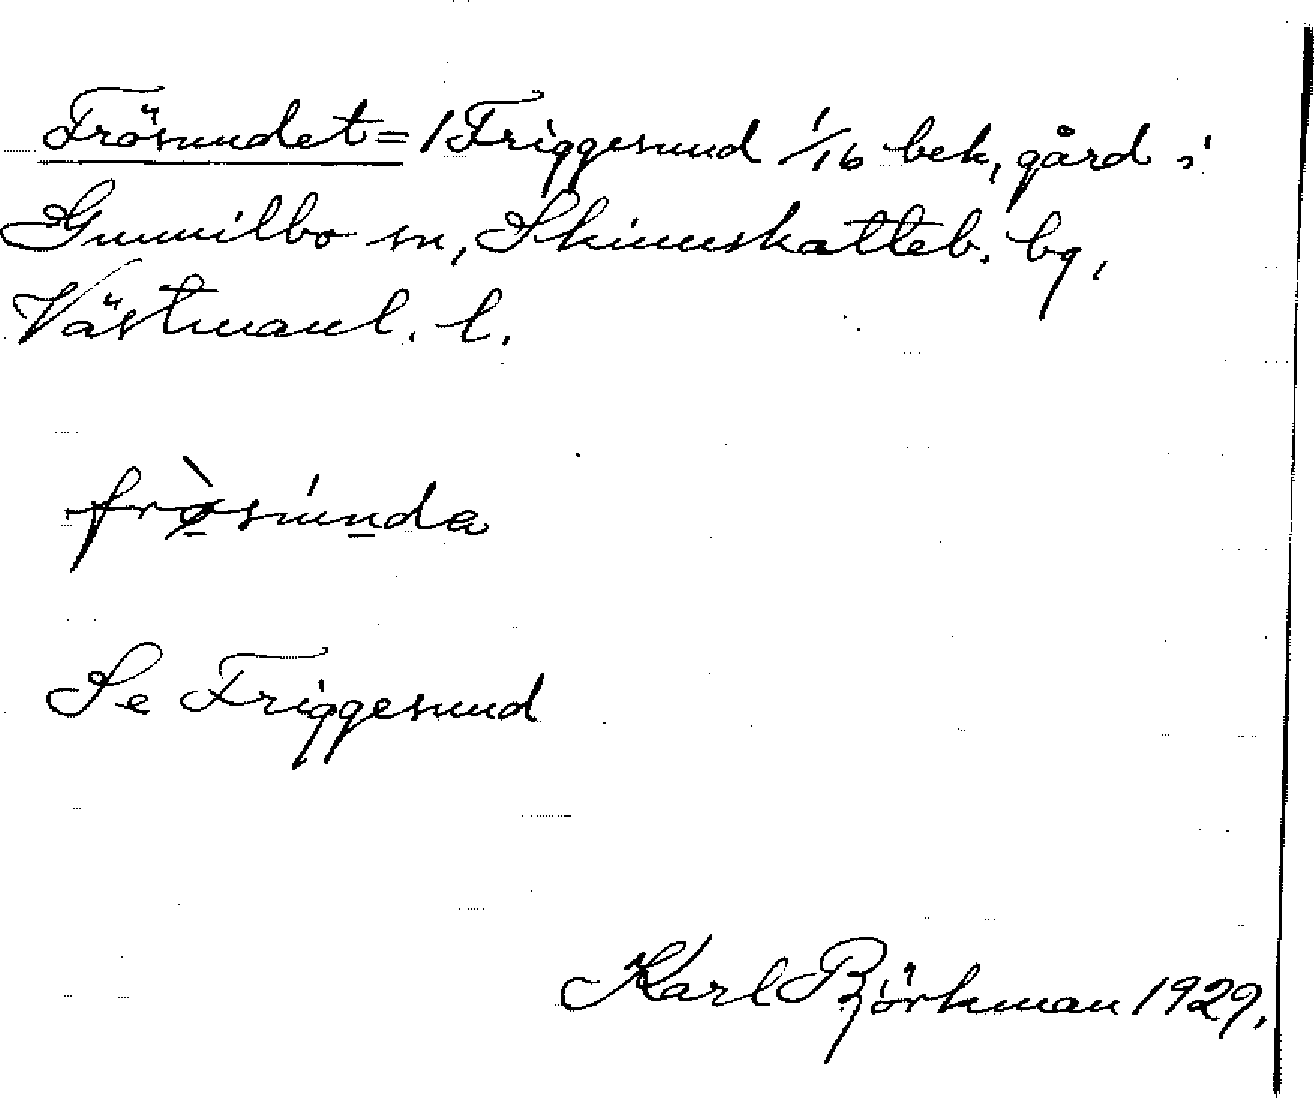 Frösundet = 1 Friggesund 1/16 bek, gård i
Gunnilbo sn, Skinnskatteb. bg,
Västmanl. l.
frø̀súnda
Se Friggesund
Karl Björkman 1929.